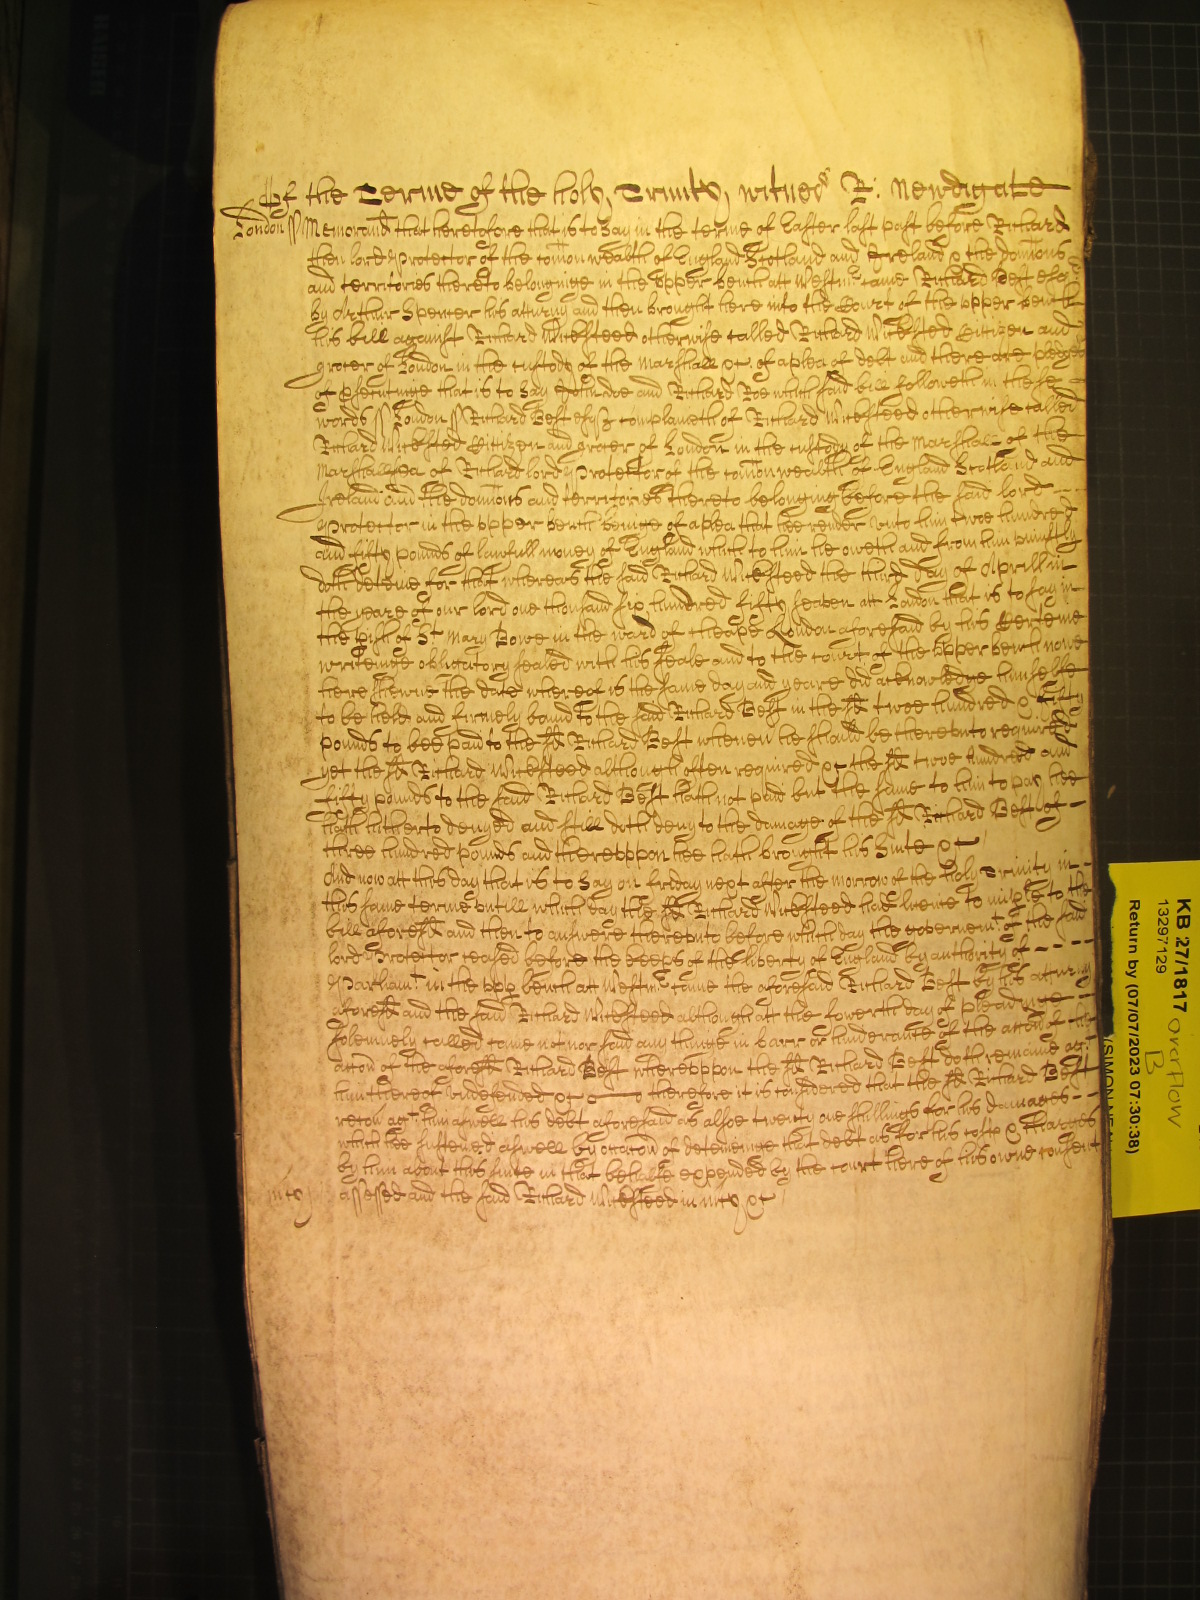 Of the Terme of the holy Trinity witnes R: Newdigate
London ss Memorand that heretofore that is to say in the terme of Easter last past before Richard
then lord Protector of the comon wealth of England Scotland and Ireland & the dominions
and territories thereto belonginge in the upper bench att Westmr came Richard Best esqr
by Arthur Spencer his atturny and then brought here into the Court of the upper bench
his bill against Richard Wicksteed otherwise called Richard Wicksted Citizen and
grocer of London in the custody of the Marshall &c of a plea of debt and there are pledges
of psecutinge that is to say John doe and Richard Roe which said bill followeth in these
words ss London ss Richard Best esqr complaineth of Richard Wicksteed otherwise called
Richard Wicksted Citizen and grocer of London in the custody of the Marshall of the
Marshallsea of Richard lord Protector of the comon wealth of England Scotland and
Ireland and the dominions and territories thereto belonging before the said lord
Protector in the upper bench beinge of a plea that hee render unto him twoe hundred
and fifty pounds of lawfull money of England which to him he oweth and from him uniustly
doth deteine for that whereas the said Richard Wicksteed the third day of Aprill in
the yeare of our lord one thousand six hundred fifty seaven att London that is to say in
the pish of St Mary Bowe in the ward of cheape London aforesaid by his Certeine
writeinge obligatory sealed with his seale and to the court of the upper bench nowe
here shewne the date whereof is the same day and yeare did acknowledge himselfe
to be held and firmely bound to the said Richard Best in the sd twoe hundred & fifty
pounds to bee paid to the sd Richard Best whenen he should be thereunto required
yet the sd Richard Wicksteed although often required &c the sd twoe hundred and
fifty pounds to the said Richard Best hath not paid but the same to him to pay hee
hath hitherto denyed and still doth deny to the damage of the sd Richard Best of
three hundred pounds and thereuppon hee hath brought his Suite &c
And now att this day that is to say on friday next after the morrow of the holy Trinity in
this same terme untill which day the sd Richard Wicksteed had licence to imple to the
bill aforesd and then to answere thereunto before which day the governemt of the said
lord Protector ceased before the keeps of the liberty of England by authority of
Parliamt in the upp bench att Westmr came the aforesaid Richard Best by his atturny
aforesd and the said Richard Wicksteed although att the fowerth day of pleadinge
solemnely called came not nor said any thinge in barr or hinderance of the accon of the
accon of the aforesd Richard Best whereuppon the sd Richard Best doth remaine agt
him thereof undefended &c therefore it is considered that the sd Richard Best
recov agt him aswell his debt aforesaid as alsoe twenty one shillings for his damages
which hee susteined aswell by occacon of deteininge that debt as for his costs & charges
by him about his suite in that behalfe expended by the court here of his owne consent
mcy assessed and the said Richard Wicksteed in mcy &c
KB 27/1817 overflow
13297129 B
Return by (07/07/2023 07:30:38)